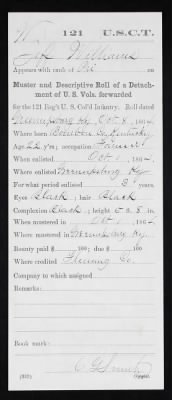 W 121 U.S.C.T.
Jeff Williams
Appears with rank of Pvt on
Muster and Descriptive Roll of a Detach-
ment of U. S. Vols. forwarded
for the 121 Reg't U. S. Col'd Infantry. Roll dated
Greenupsburg Ky, Oct 8, 1864
Where born Bourbon Co, Kentucky
Age 22 y'rs; occupation Farmer
When enlisted Oct 1, 1864
Where enlisted Greenupsburg Ky.
For what period enlisted 3 years.
Eyes Black; hair Black
Complexion Black; height 5 ft. 8 in.
When mustered in Oct 1, 1864
Where mustered in Greenupsburg Ky.
Bounty paid $ 100; due $ 100
Where credited Fleming Co.
Company to which assigned
Remarks:
Book mark:
(339) Copyist.